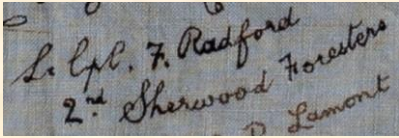 L. Cpl. F. Radford
2nd. Sherwood Foresters
D. Lamont